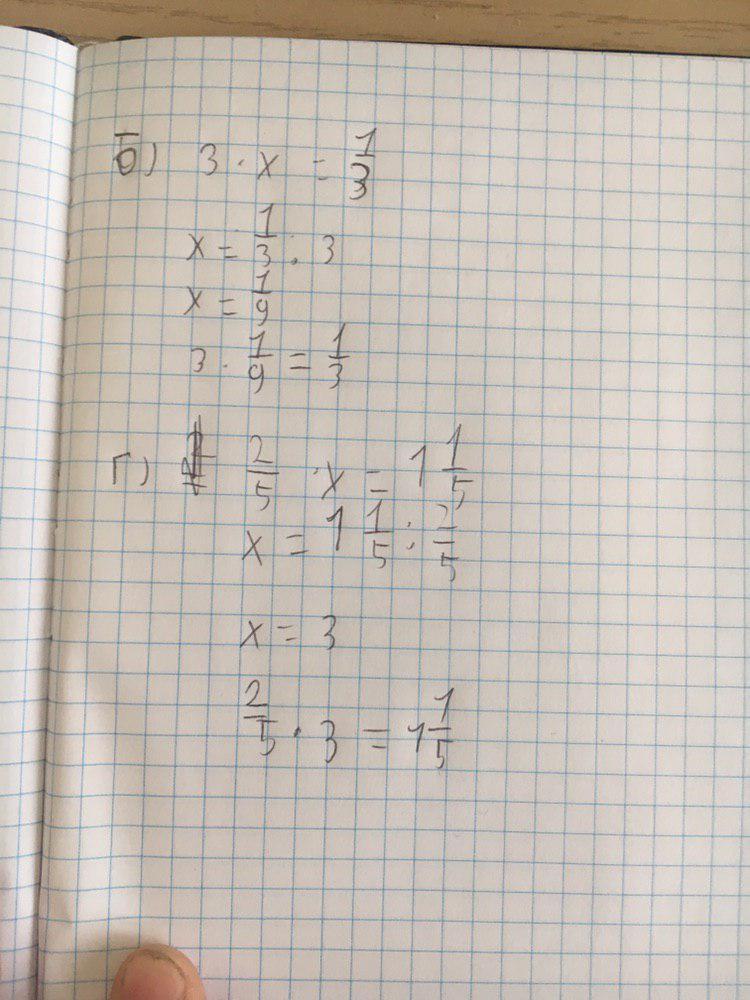 б) 3 · x = 1/3
x = 1/3 : 3
x = 1/9
3 · 1/9 = 1/3
г) 2/5 · x = 1 1/5
x = 1 1/5 : 2/5
x = 3
2/5 · 3 = 1 1/5